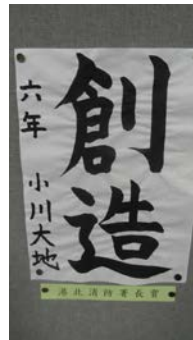 創造
六年 小川大地
港北消防署長賞